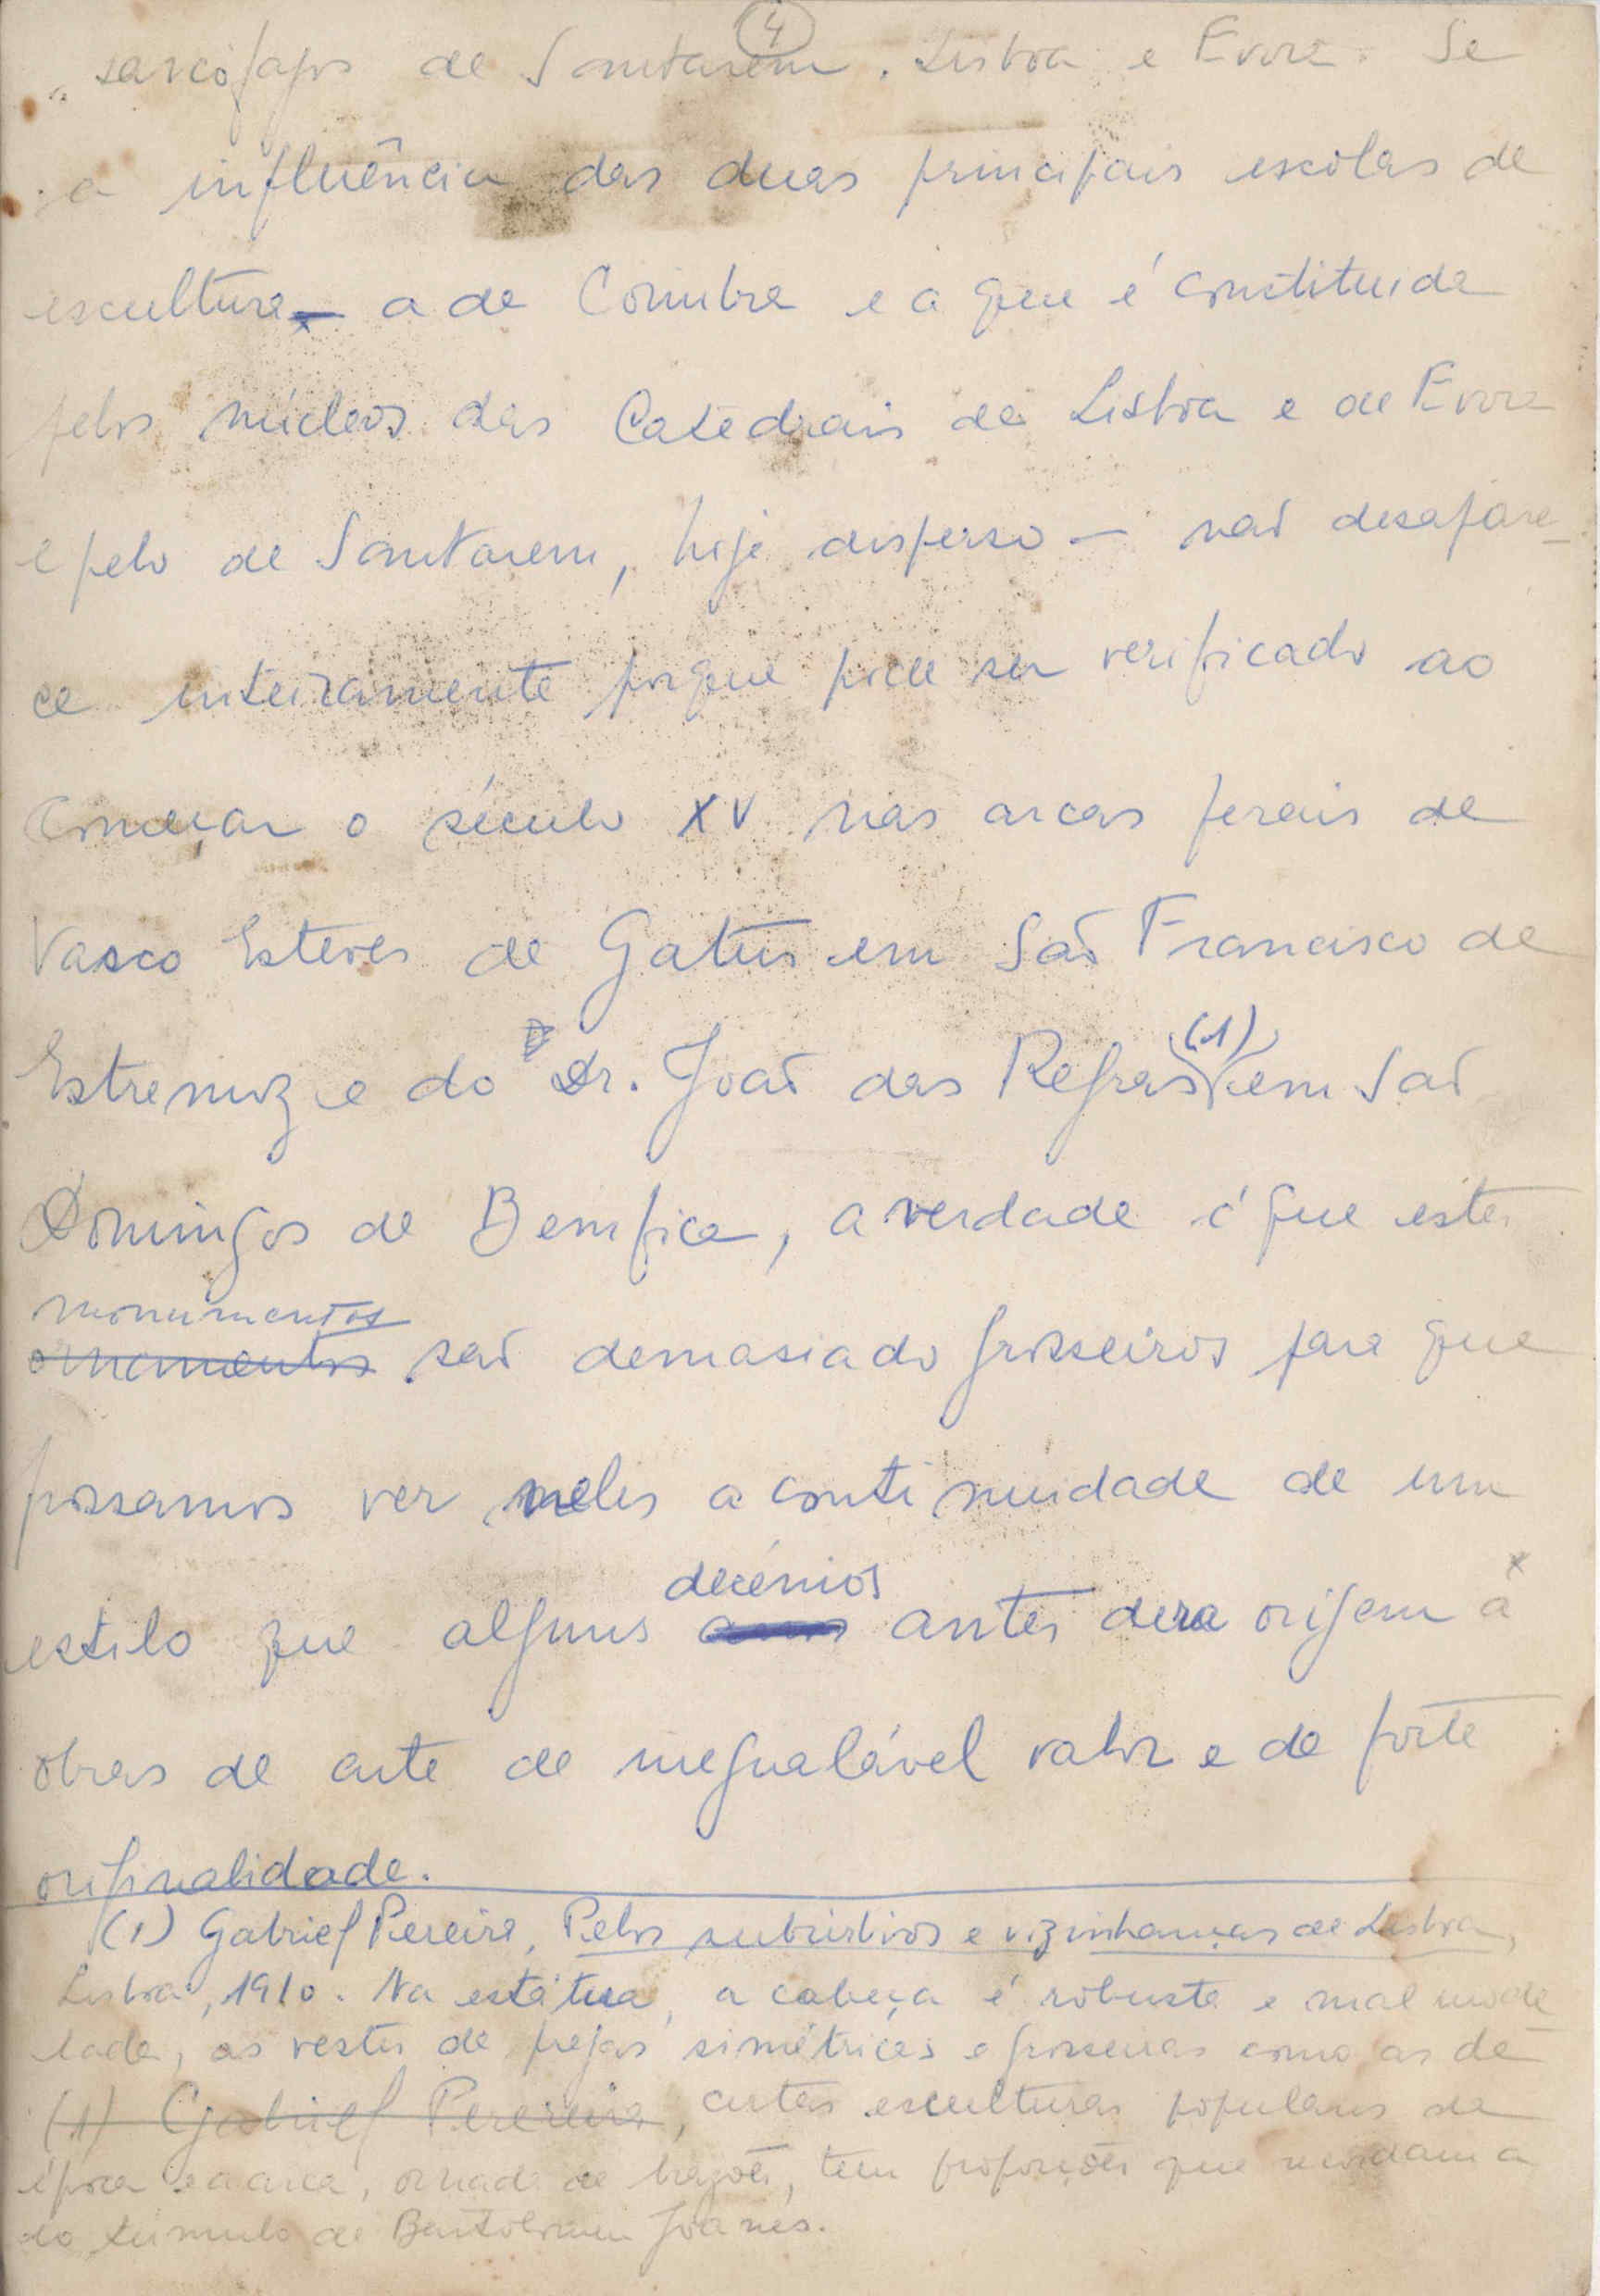 4
sarcófagos de Santarém. Lisboa e Evora. Se
a influência das duas principais escolas de
escultura — a de Coimbra e a que é constituida
pelos núcleos das Catedrais de Lisboa e de Evora
e pelo de Santarem, hoje disperso — não desapare-
ce inteiramente porque pode ser verificado ao
começar o século XV nas arcas ferais de
Vasco Esteves de Gatus em São Francisco de
Estremoz e do Dr. João das Regras (1) em São
Domingos de Bemfica, a verdade é que estes
monumentos
ornamentos são demasiado grosseiros para que
possamos ver neles a continuidade de um
estilo que alguns decénios antes dera origem a
obras de arte de inegualável valor e de forte
originalidade.
(1) Gabriel Pereira, Pelos suburbios e vizinhanças de Lisboa,
Lisboa, 1910. Na estátua, a cabeça é robusta e mal mode
lada, as vestes de pregas simétricas e grosseiras como as de
(1) Gabriel Perereira, certas esculturas populares da
época e a arca, ornada de brazões, tem proporções que recordam a
do túmulo de Bartolomeu Joanes.